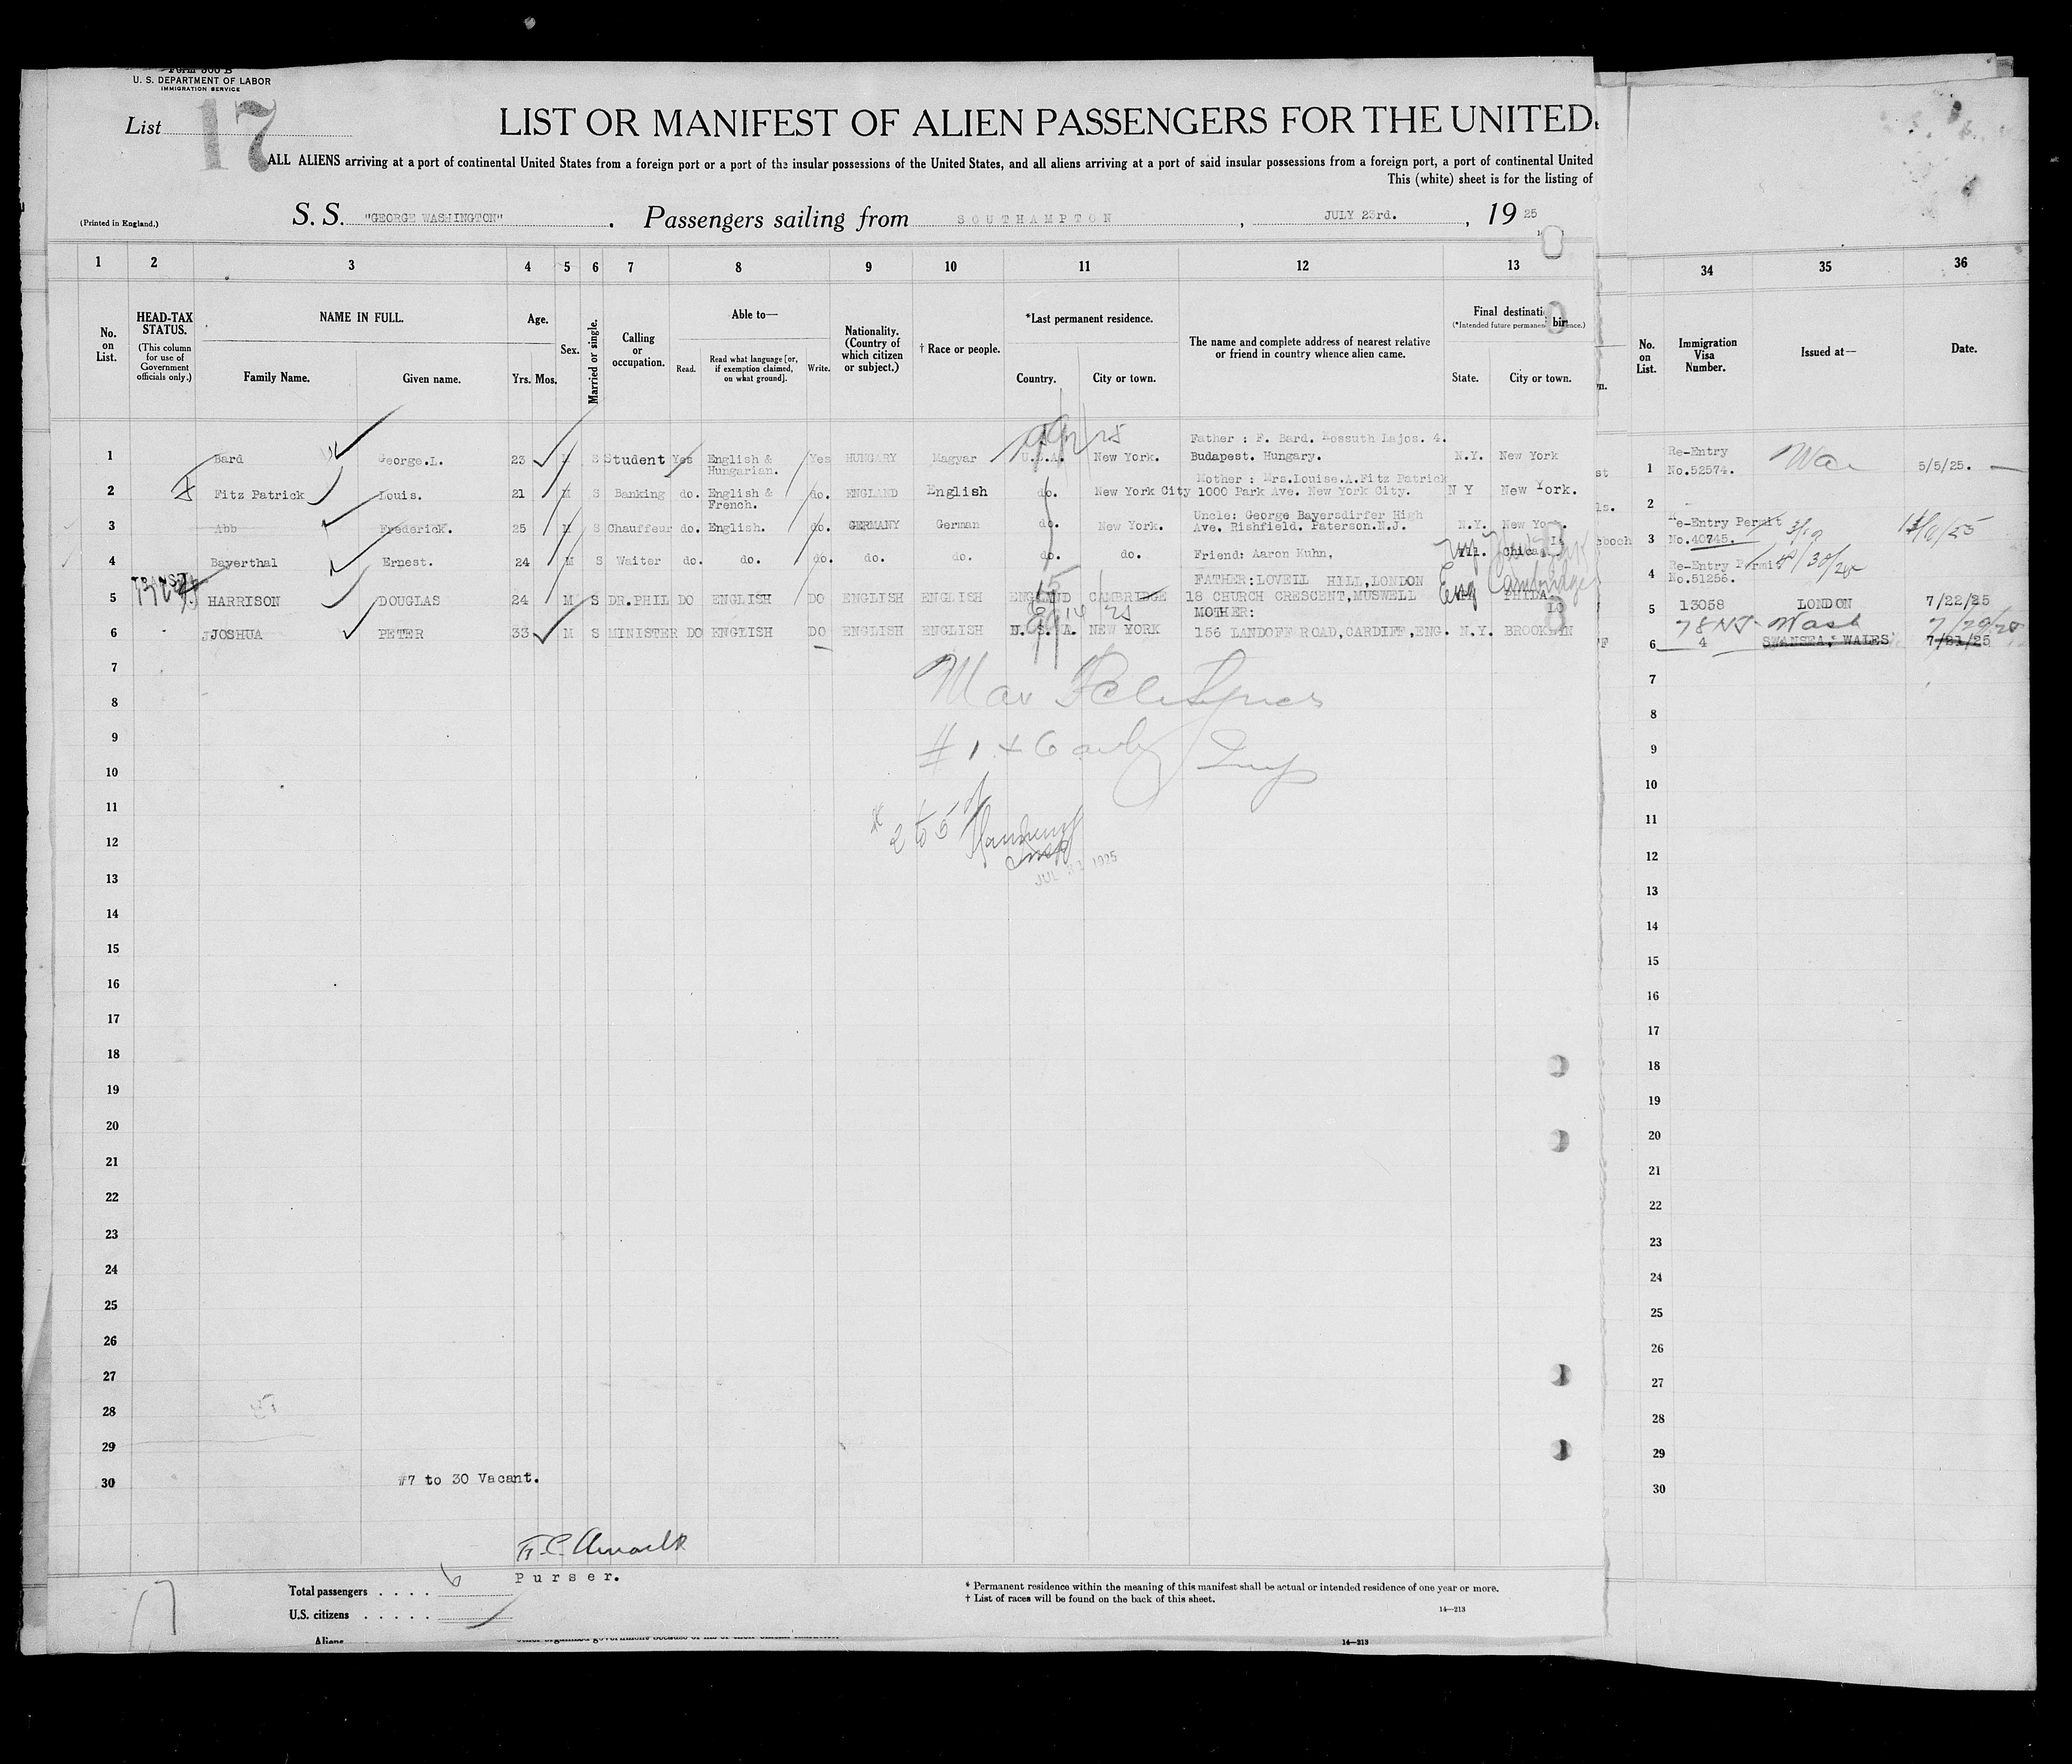 Form 500 B
U. S. DEPARTMENT OF LABOR
IMMIGRATION SERVICE
List 17
LIST OR MANIFEST OF ALIEN PASSENGERS FOR THE UNITED
ALL ALIENS arriving at a port of continental United States from a foreign port or a port of the insular possessions of the United States, and all aliens arriving at a port of said insular possessions from a foreign port, a port of continental United
This (white) sheet is for the listing of
(Printed in England.) S. S. "GEORGE WASHINGTON" . Passengers sailing from SOUTHAMPTON , JULY 23rd. , 19 25
1 2 3 4 5 6 7 8 9 10 11 12 13 34 35 36
No. on List.
HEAD-TAX STATUS.
(This column for use of Government officials only.)
NAME IN FULL.
Family Name. Given name.
Age.
Yrs. Mos.
Sex.
Married or single.
Calling or occupation.
Able to—
Read. Read what language [or, if exemption claimed, on what ground]. Write.
Nationality. (Country of which citizen or subject.)
† Race or people.
*Last permanent residence.
Country. City or town.
The name and complete address of nearest relative or friend in country whence alien came.
Final destinati
(*Intended future permane
State. City or town.
No. on List.
Immigration Visa Number.
Issued at—
Date.
1 Bard George.L. 23 M S Student Yes English & Hungarian. Yes HUNGARY Magyar U.S.A. New York. Father : F. Bard. Kossuth Lajos. 4. Budapest. Hungary. N.Y. New York
1 Re-Entry No.52574. 5/5/25.
2 Fitz Patrick Louis. 21 M S Banking do. English & French. do. ENGLAND English do. New York City Mother : Mrs.Louise.A.Fitz Patrick 1000 Park Ave. New York City. N Y New York.
2
3 Abb Frederick. 25 M S Chauffeur do. English. do. GERMANY German do. New York. Uncle: George Bayersdirfer High Ave. Rishfield. Paterson.N.J. N.Y. New Yo
3 Re-Entry Permit No.40745.
4 Bayerthal Ernest. 24 M S Waiter do. do. do. do. do. do. do. Friend: Aaron Kuhn, Ill. Chica
4 Re-Entry Permit No.51256.
TRANSIT
5 HARRISON DOUGLAS 24 M S DR.PHIL DO ENGLISH DO ENGLISH ENGLISH ENGLAND CAMBRIDGE FATHER:LOVELL HILL,LONDON 18 CHURCH CRESCENT,MUSWELL Eng Cambridge PHILA
5 13058 LONDON 7/22/25
6 JOSHUA PETER 33 M S MINISTER DO ENGLISH DO ENGLISH ENGLISH U. S. A. NEW YORK MOTHER: 156 LANDOFF ROAD,CARDIFF,ENG. N.Y. BROOKLYN
78 NJ- Wash
6 4 SWANSEA, WALES 7/21/25
7 7
8 8
9 9
# 1 + 6 only Insp
10 10
11 11
# 2 to 5
12 12
Insp
JUL 31 1925
13 13
14 14
15 15
16 16
17 17
18 18
19 19
20 20
21 21
22 22
23 23
24 24
25 25
26 26
27 27
28 28
29 29
30 #7 to 30 Vacant. 30
Purser.
Total passengers . . . . 6
U.S. citizens . . . . .
Aliens
17
* Permanent residence within the meaning of this manifest shall be actual or intended residence of one year or more.
† List of races will be found on the back of this sheet.
14—213
14—213